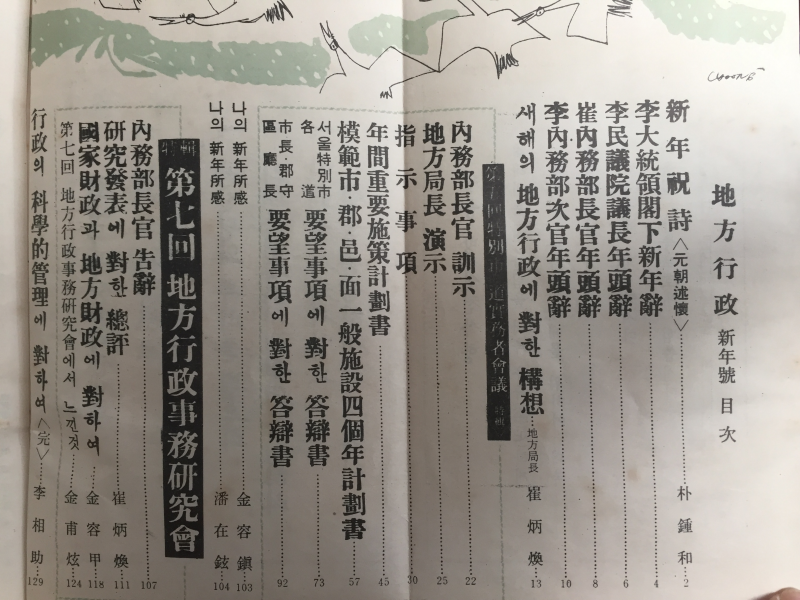 地方行政 新年號 目次
新年祝詩〈元朝述懷〉 朴鍾和 2
李大統領閣下新年辭 4
李民議院議長年頭辭 6
崔內務部長官年頭辭 8
李內務部次官年頭辭 10
새해의 地方行政에 對한 構想 地方局長 崔炳煥 13
特別市 道實務者會議
內務部長官 訓示 22
地方局長 演示 25
指示事項 30
年間重要施策計劃書 45
模範市·郡·邑·面一般施設四個年計劃書 57
서울特別市 各道 要望事項에 對한 答辯書 73
市長·郡守 區廳長 要望事項에 對한 答辯書 92
나의 新年所感 金容鎭 103
나의 新年所感 潘在鉉 104
特輯 第七回 地方行政事務研究會
內務部長官 告辭 107
研究發表에 對한 總評 崔炳煥 111
國家財政과 地方財政에 對하여 金容甲 118
第七回 地方行政事務研究會에서 느낀것 金甫炫 124
行政의 科學的管理에 對하여〈完〉 李相助 129